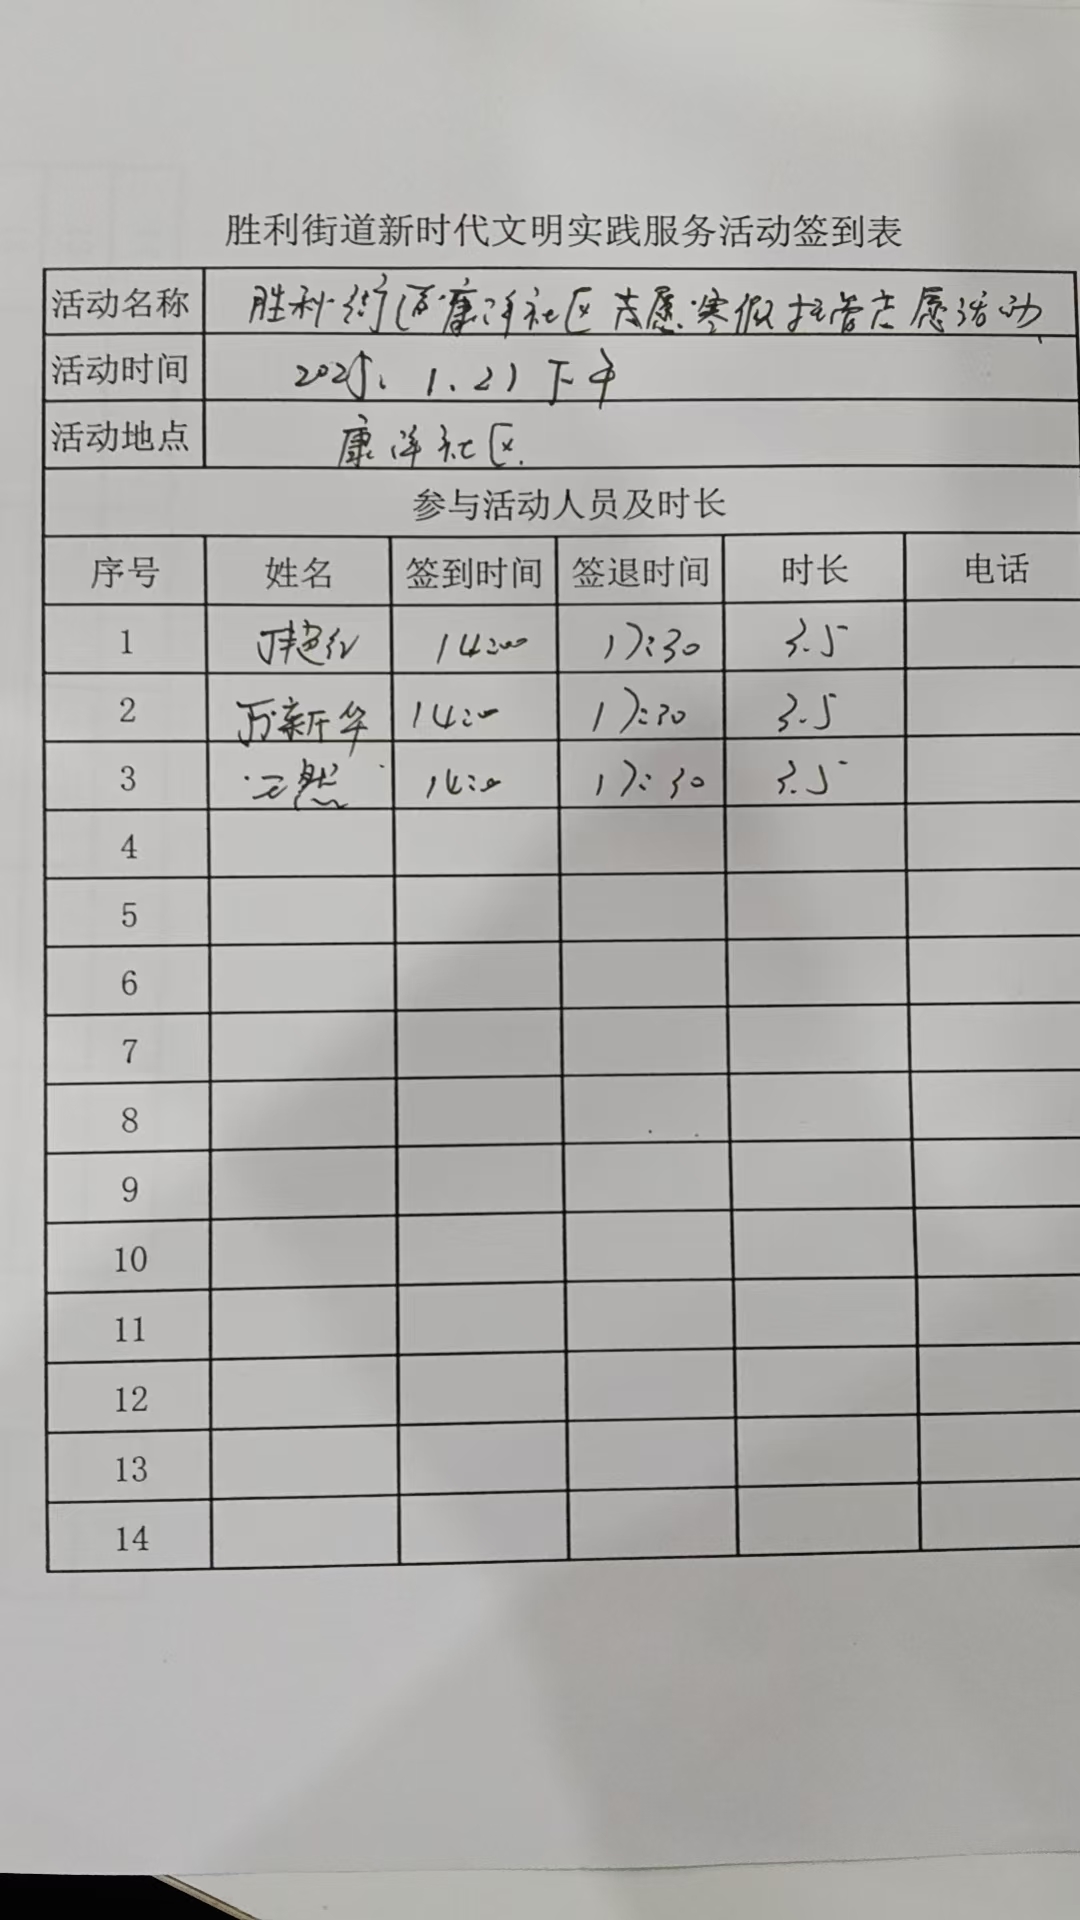 胜利街道新时代文明实践服务活动签到表
活动名称 胜利街道康洋社区志愿寒假托管志愿活动
活动时间 2025.1.21下午
活动地点 康洋社区.
参与活动人员及时长
序号 姓名 签到时间 签退时间 时长 电话
1 14:00 17:30 3.5
2 万新华 14:00 17:30 3.5
3 14:00 17:30 3.5
4
5
6
7
8
9
10
11
12
13
14